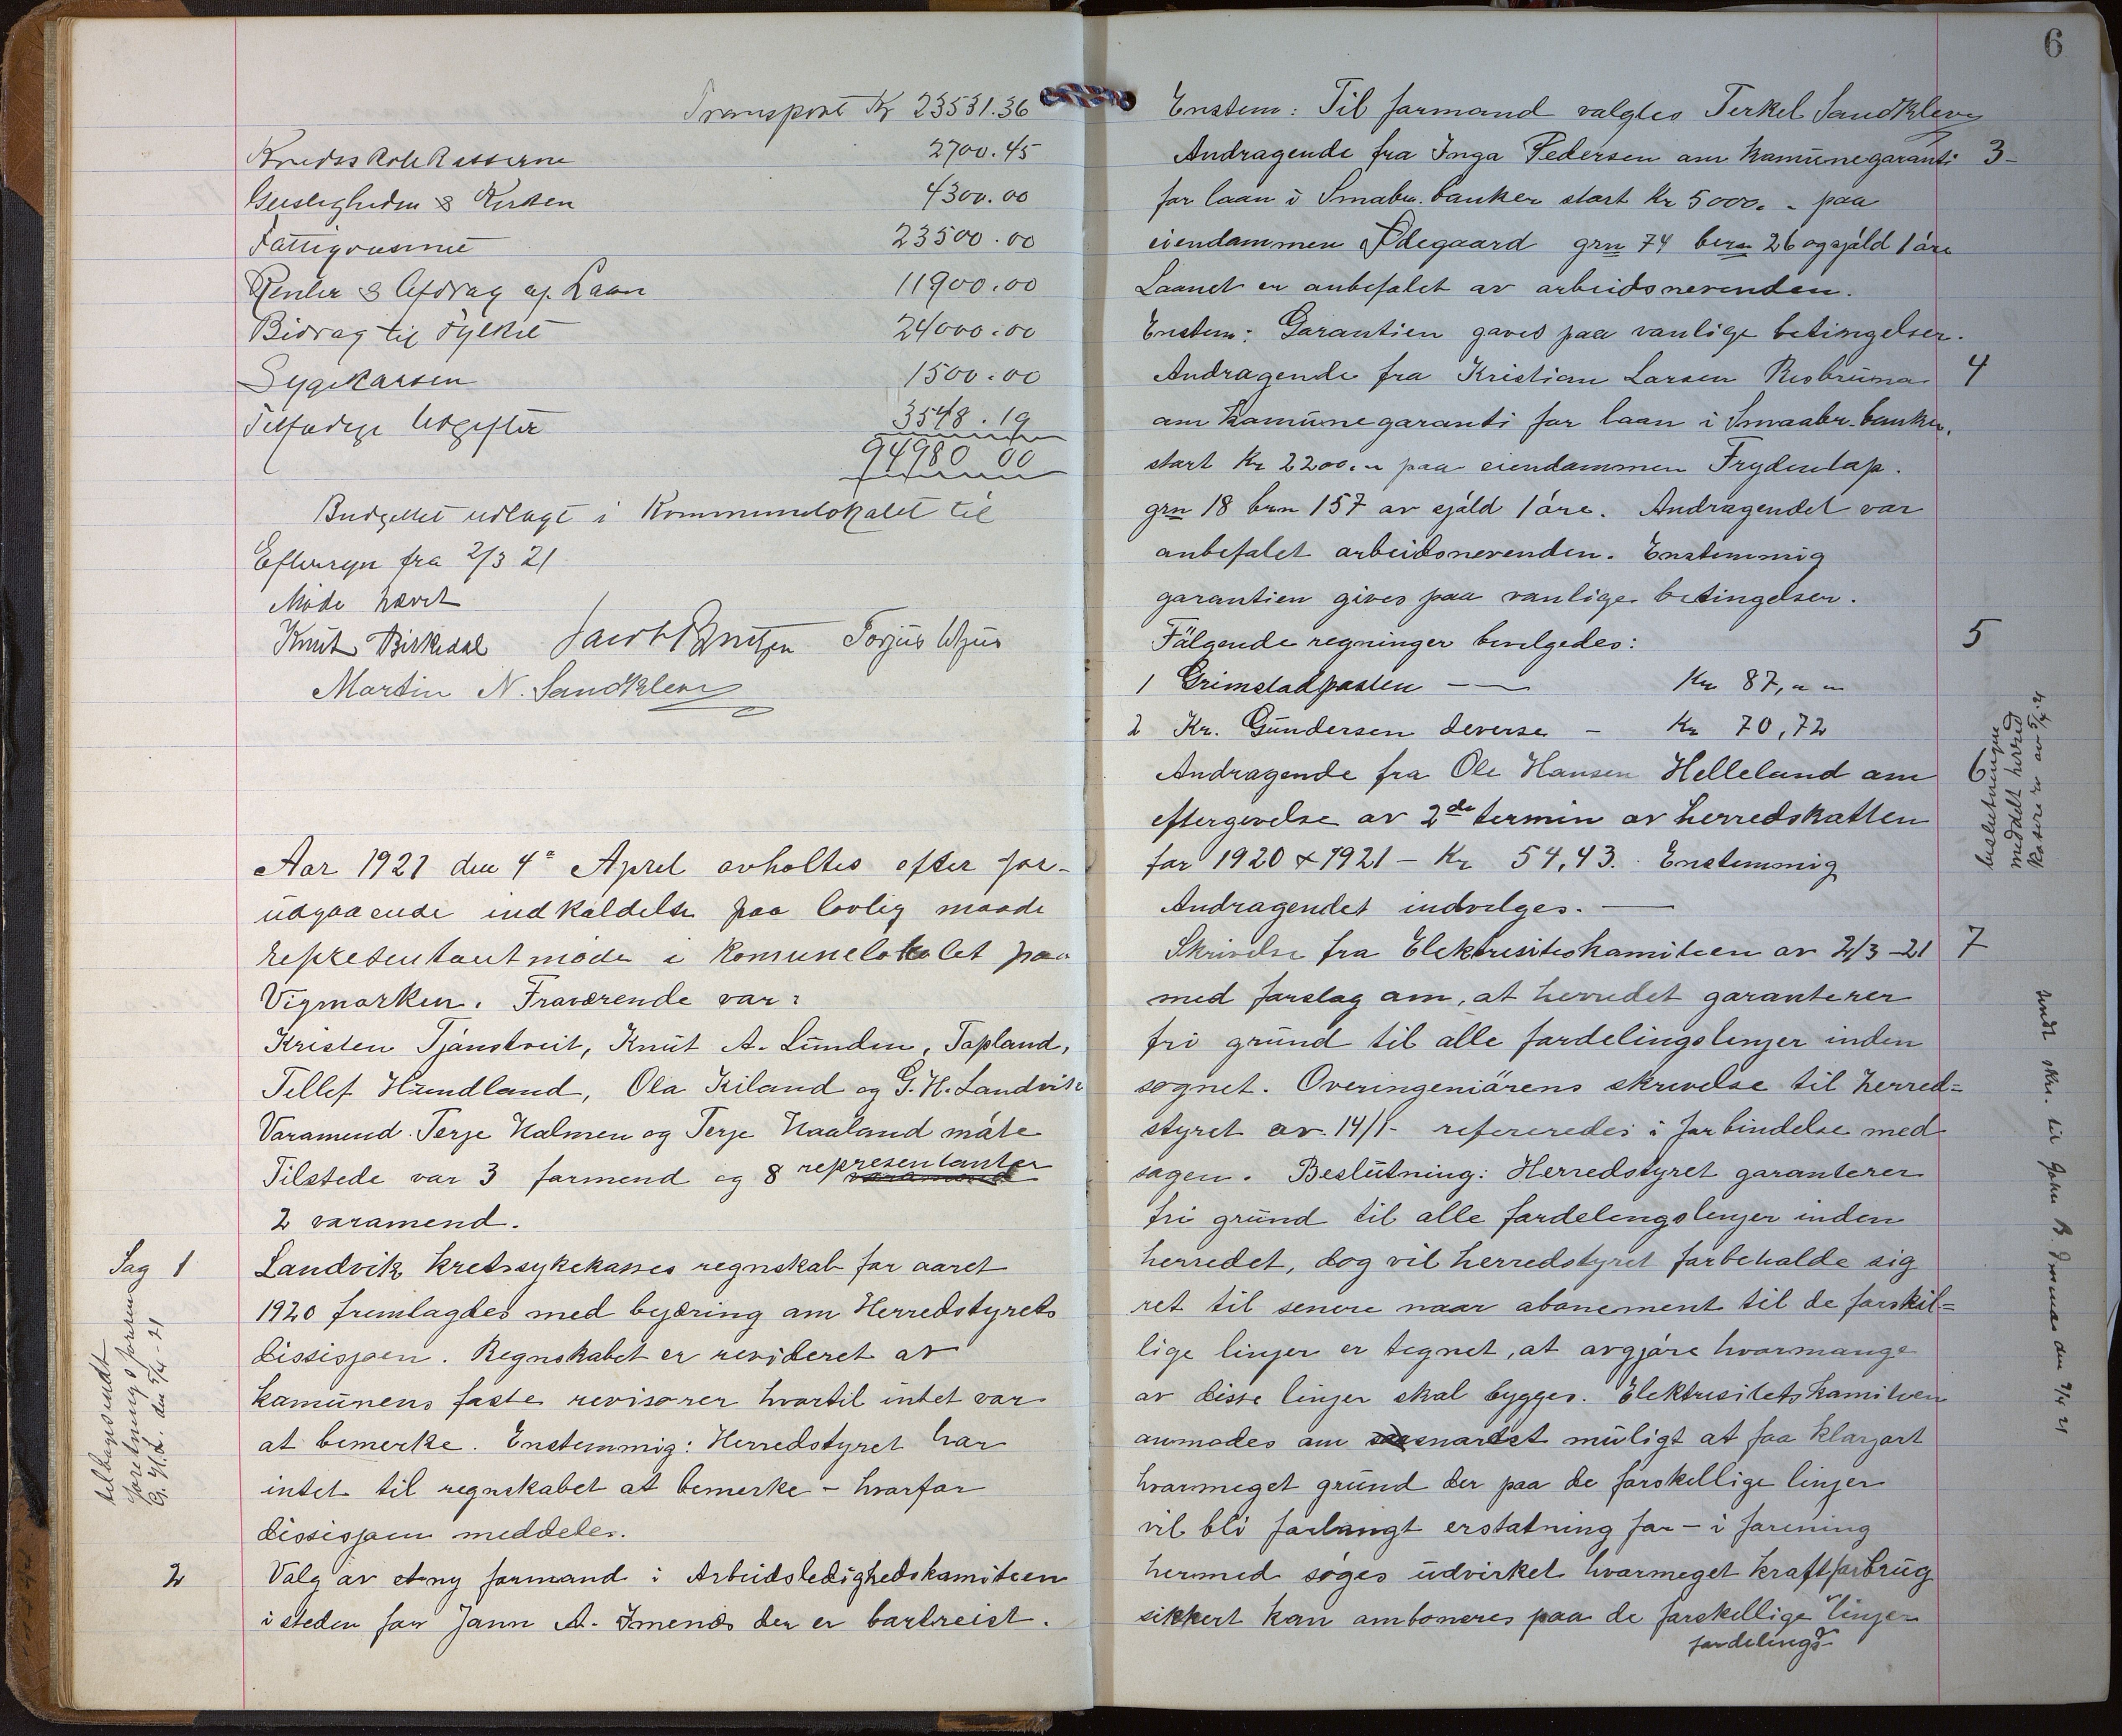 Transport Kr 23531.36
Kredsskolekasserne 2700.45
Geistligheden & Kirken 4300.00
Fattigvæsenet 23500.00
Renter & Afdrag af Laan 11900.00
Bidrag til Fylket 24000.00
Sygekassen 1500.00
Tilfædige Udgifter 3548.19
94980 00
Budgettet udlagt i Kommunelokalet til
Eftersyn fra 2/3 21
Møde hævet
Knut Birkedal Jacob Knutsen Torjus Ufjus
Martin N. Sandkleiv
Aar 1921 den 4de April avholtes efter for-
udgaaende indkaldelse paa lovlig maade
representantmøde i komunelokalet paa
Vigmarken. Fraværende var:
Kristen Tjønstveit, Knut A. Lunden, Topland,
Tellef Hundland, Ola Kiland og G. H. Landvik
Varamend Terje Halmen og Terje Haaland måte
Tilstede var 3 formend og 8 representanter
2 varamend.
Sag 1 Landvik kretssykekasses regnskab for aaret
1920 fremlagdes med begæring om Herredstyrets
dissisjoen. Regnskabet er revideret av
kamunens faste revisorer hvortil intet var
at bemerke. Enstemmig: Herredstyret har
intet til regnskabet at bemerke – hvorfor
dissisjoen meddeles.
tilbagesendt
foretnings føreren
G. H. L. den 5/4 - 21
2 Valg av et ny formand i Arbeidsledighedskamiteen
i steden for Jann A. Imenæs der er bortreist.
6
Enstem: Til formand valgtes Terkel Sandkleiv
Andragende fra Inga Pedersen om kamunegaranti 3-
for laan i Smabr. banken stort kr 5000,- paa
eiendommen Ødegaard grn 74 brn 26 og sjåld 1 åre
Laanet er anbefalet av arbeidsnevenden.
Enstem: Garantien gaves paa vanlige betingelser.
Andragende fra Kristian Larsen Resbruma 4
om kamunegaranti for laan i Smaabr-banken.
stort Kr 2200,- paa eiendommen Frydentop.
grn 18 brn 157 av sjåld 1 åre. Andragendet var
anbefalet arbeidsnevenden. Enstemmig
garantien gives paa vanlige betingelser.
Fålgende regninger bevilgedes: 5
1 Grimstadposten — Kr 87, " "
2 Kr. Gundersen deverse - Kr 70,72
Andragende fra Ole Hansen Helleland om 6
eftergivelse av 2de termin av herredskatten
for 1920 & 1921 – Kr 54,43. Enstemmig
Andragendet indvilges. —
beslutningne
meddelt herred
kasserer av 5/4 21
Skrivelse fra Elektresiteskamiteen av 2/3 -21 7
med forslag om, at herredet garanterer
fri grund til alle fordelingslinjer inden
sognet. Overingeniørens skrivelse til herred=
styret av 14/1- refereredes i forbindelse med
sagen. Beslutning: Herredstyret garanterer
fri grund til alle fordelengslinjer inden
herredet, dog vil herredstyret forbeholde sig
ret til senere naar abonement til de forskil=
lige linjer er tegnet, at avgjøre hvormange
av disse linjer skal bygges. Elektrisitetskamiteen
anmodes om snartest muligt at faa klargort
hvormeget grund der paa de forskellige linjer
vil bli forlangt erstatning for – i forening
hermed søges udvirket hvormeget kraftforbrug
sikkert kan amboneres paa de forskellige linjer
fordelings-
sendt skr. til John B. den 9/4 21